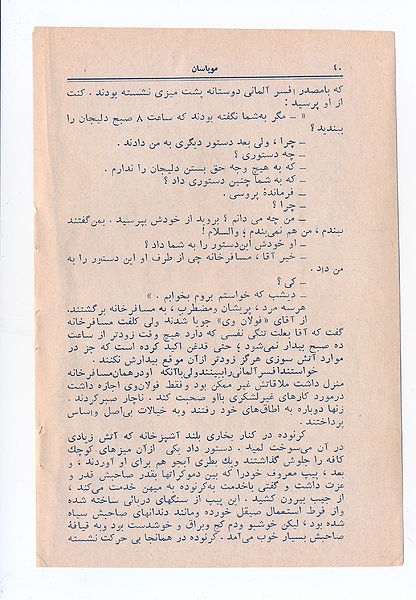 ۴۰
موپاسان
که بامصدر افسر آلمانی دوستانه پشت میزی نشسته بودند. کنت
از او پرسید:
« ــ مگر به‌شما نگفته بودند که ساعت ۸ صبح دلیجان را
ببندید؟
ــ چرا، ولی بعد دستور دیگری به من دادند.
ــ چه دستوری؟
ــ که به هیچ وجه حق بستن دلیجان را ندارم.
ــ که به شما چنین دستوری داد؟
ــ فرماندهٔ پروسی.
ــ چرا؟
ــ من چه می دانم؟ بروید از خودش بپرسید. بمن‌گفتند
نبندم، من هم نمی‌بندم؛ والسلام!
ــ او خودش این‌دستور را به شما داد؟
ــ خیر آقا، مسافرخانه چی از طرف او این دستور را به
من داد.
ــ کی؟
ــ دیشب که خواستم بروم بخوابم. »
هرسه مرد، پریشان ومضطرب، به مسافرخانه برگشتند.
از آقای «فولان وی» جویا شدند ولی کلفت مسافرخانه
گفت که آقا بعلت تنگی نفسی که دارد هیچ وقت زودتر از ساعت
ده صبح بیدار نمی‌شود؛ حتی قدغن اکید کرده است که جز در
موارد آتش سوزی هرگز زودتر ازآن موقع بیدارش نکنند.
خواستند افسرآلمانی را ببینند ولی باآنکه اودرهمان‌مسافرخانه
منزل داشت ملاقاتش غیر ممکن بود و فقط فولان‌وی اجازه داشت
درمورد کارهای غیرلشکری بااو صحبت کند. ناچار صبرکردند.
زنها دوباره به اطاق‌های خود رفتند وبه خیالات بی‌اصل واساس
پرداختند.
کرنوده در کنار بخاری بلند آشپزخانه که آتش زیادی
در آن می‌سوخت لمید. دستور داد یکی ازآن میزهای کوچك
کافه را جلوش گذاشتند ویك بطری آبجو هم برای او آوردند، و
بعد، پیپ معروف خودرا که بین دموکراتها بقدر صاحبش قدر و
عزت داشت و گفتی باخدمت به‌کرنوده به میهن خدمت می‌کند،
از جیب بیرون کشید. این پیپ از سنگهای دریائی ساخته شده
واز فرط استعمال صیقل خورده ومانند دندانهای صاحبش سیاه
شده بود، لیکن خوشبو ودم کج وبراق و خوشدست بود وبه قیافهٔ
صاحبش بسیار خوب می‌آمد. کرنوده در همانجا بی حرکت نشسته